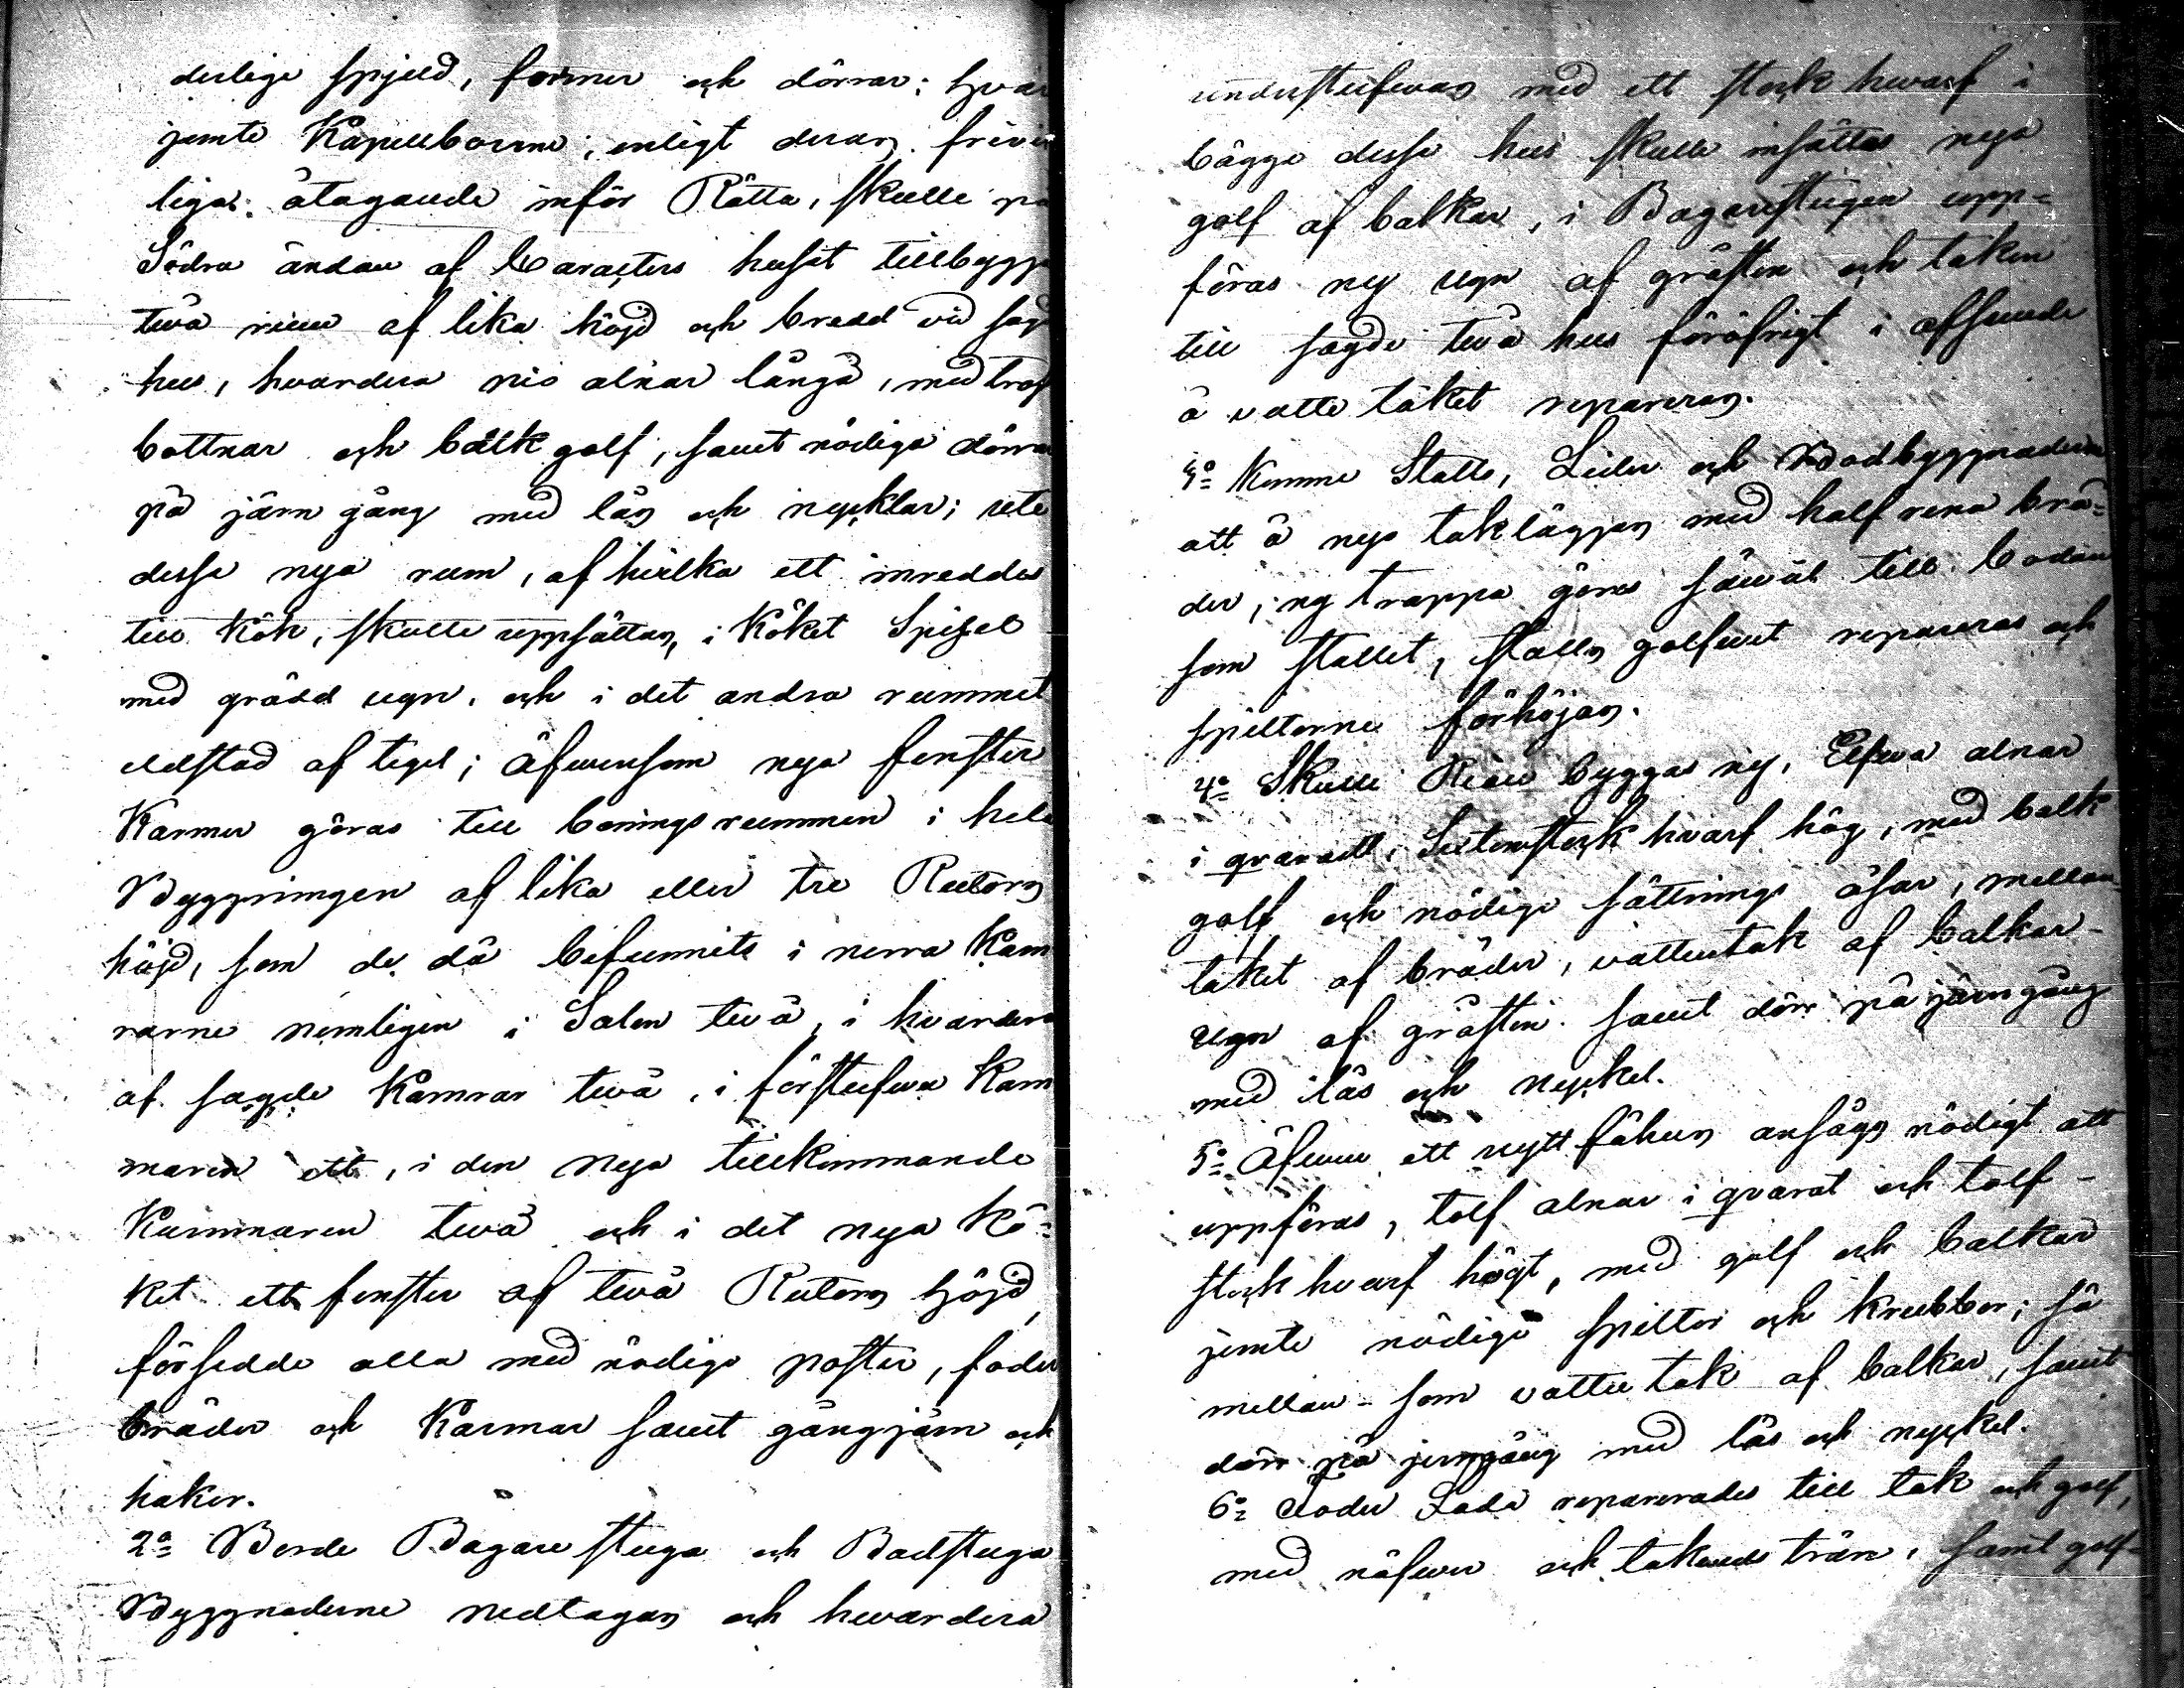 derlige spjeld, former och dörrar; hvar
jemte Kapellboerne, enligt deras frivil
liga åtagande inför Rätta, skulle på
Södra ändan af Caracters huset tillbygga
twå rum af lika höjd och bredd vid sagde
hus, hwardera nio alnar långa, med tross
bottnar och balk golf, samt nödiga dörrar
på järn gång med lås och nycklar; uti
dessa nya rum, af hvilka ett inreddes
till Kök, skulle uppsättas, i Köket Spisel
med grädd ugn, och i det andra rummet
eldstad af tegel; äfwensom nya fenster
Karmer göras till bonings rummen i hela
Byggningen af lika eller tre Rutors
höjd, som de då befunnits i norra Kam
rarne nemligen i Salen twå, i hvardera
af sagde Kamrar twå, i förstufwu Kam
maren ett, i den nya tillkommande
Kammaren twå och i det nya Kö-
ket ett fenster af twå Rutors höjd,
försedde alla med nödige poster, foder
bräder och Karmar samt gångjärn och
hakor.
2o Borde Bagarestuga och Badstuga
Byggnaderne nedtagas och hwardera
understufwas med ett stock hwarf i
bägge dessa hus skulle insättas nya
golf af balkar, i Bagarstugan upp-
föras ny ugn af gråsten och taken
till sagde twå hus föröfrigt i afseende
å vatte taket repareras.
3o Komme Stalls, Lider och Bodbyggnaderne
att å nyo takläggas med half rena brä-
der, ny trappa göras såwäl till boden
som stallet, stalls golfwet repareras och
spiltorne förhöjas.
4o Skulle Rian byggas ny, Elfwa alnar
i qvaradt, Sutton stock hwarf hög, med balk
golf och nödige sättnings åsar, mellan
taket af bräder, vattentak af balkar-
Ugn af gråsten samt dörr på järngång
med lås och nyckel.
5o Äfwen ett nytt fähus ansågs nödigt att
uppföras, tolf alnar i qvarat och tolf-
stock hvarf högt, med golf och balkar
jemte nödige spiltor och krubbor; så
mellan- som vatten tak af balkar, samt
dörr på jerngång med lås och nyckel.
6o Foder Lada reparerades till tak och golf,
med näfwer och takweds trän, samt golf-